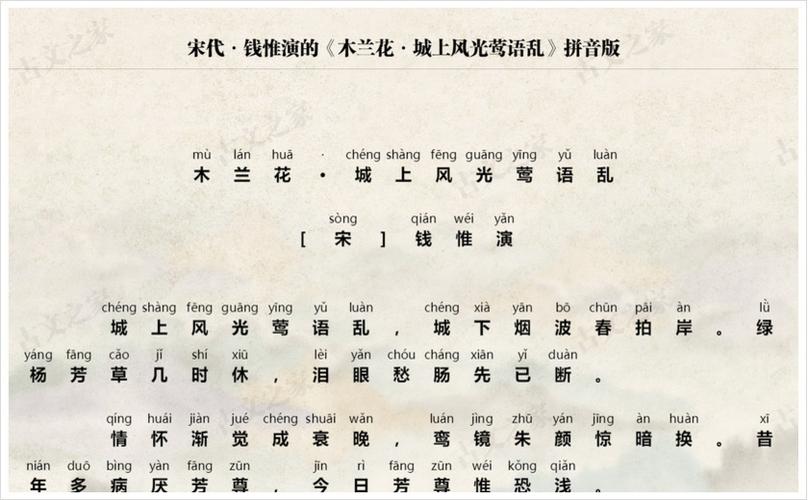 宋代·钱惟演的《木兰花·城上风光莺语乱》拼音版
mù lán huā · chéng shàng fēng guāng yīng yǔ luàn
木兰花·城上风光莺语乱
sòng qián wéi yǎn
[宋]钱惟演
chéng shàng fēng guāng yīng yǔ luàn chéng xià yān bō chūn pāi àn lǜ
城上风光莺语乱,城下烟波春拍岸。绿
yáng fāng cǎo jǐ shí xiū lèi yǎn chóu cháng xiān yǐ duàn
杨芳草几时休,泪眼愁肠先已断。
qíng huái jiàn jué chéng shuāi wǎn luán jìng zhū yán jīng àn huàn xī
情怀渐觉成衰晚,鸾镜朱颜惊暗换。昔
nián duō bìng yàn fāng zūn jīn rì fāng zūn wéi kǒng qiǎn
年多病厌芳尊,今日芳尊惟恐浅。
古文之家
古文之家
古文之家
古文之家
古文之家